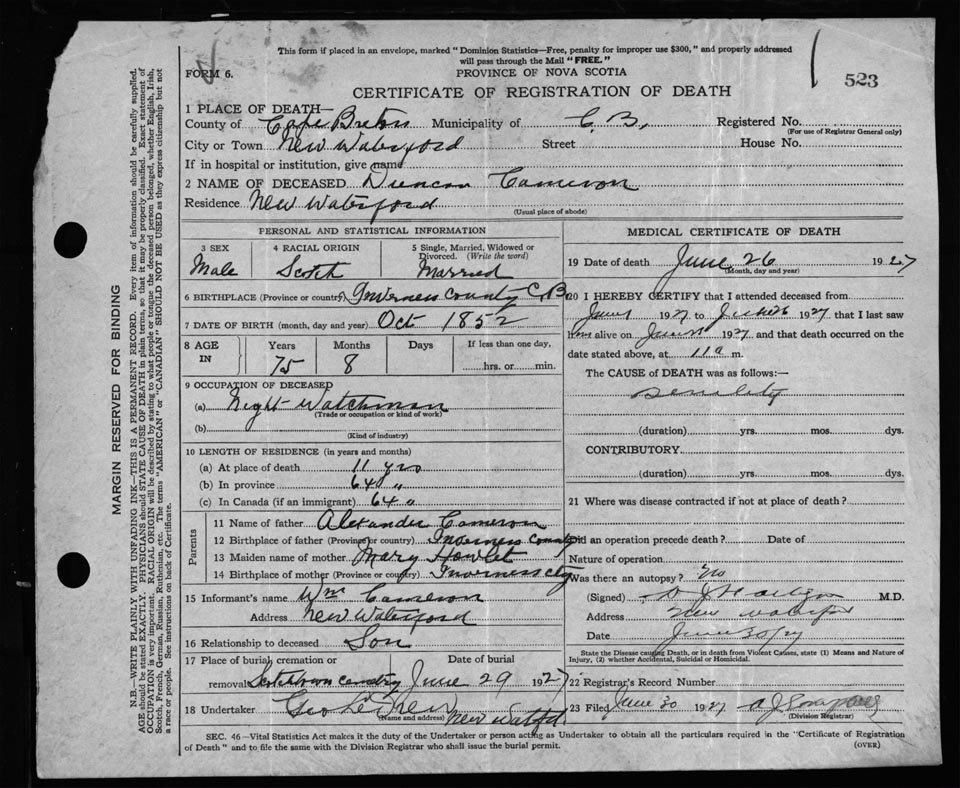 This form if placed in an envelope, marked "Dominion Statistics—Free, penalty for improper use $300," and properly addressed
will pass through the Mail "FREE."
FORM 6.
PROVINCE OF NOVA SCOTIA
523
CERTIFICATE OF REGISTRATION OF DEATH
1 PLACE OF DEATH—
County of Cape Breton Municipality of C. B. Registered No.
(For use of Registrar General only)
City or Town New Waterford Street House No.
If in hospital or institution, give name
2 NAME OF DECEASED Duncan Cameron
Residence New Waterford
(Usual place of abode)
PERSONAL AND STATISTICAL INFORMATION
3 SEX 4 RACIAL ORIGIN 5 Single, Married, Widowed or
Divorced. (Write the word)
Male Scotch Married
6 BIRTHPLACE (Province or country) Inverness County C.B.
7 DATE OF BIRTH (month, day and year) Oct 1852
8 AGE IN Years Months Days If less than one day,
75 8 hrs. or min.
9 OCCUPATION OF DECEASED
(a) Night-Watchman
(Trade or occupation or kind of work)
(b)
(Kind of industry)
10 LENGTH OF RESIDENCE (in years and months)
(a) At place of death 11 yrs
(b) In province 64 "
(c) In Canada (if an immigrant) 64 "
Parents
11 Name of father Alexander Cameron
12 Birthplace of father (Province or country) Inverness County
13 Maiden name of mother Mary Howlet
14 Birthplace of mother (Province or country) Inverness Cty
15 Informant's name Wm Cameron
Address New Waterford
16 Relationship to deceased Son
17 Place of burial, cremation or Date of burial
removal June 29 1927
18 Undertaker Geo New Watfd.
(Name and address)
MEDICAL CERTIFICATE OF DEATH
19 Date of death June 26 1927
(Month, day and year)
20 I HEREBY CERTIFY that I attended deceased from
June 1 1927 to June 26 1927 that I last saw
him alive on June 1927 and that death occurred on
date stated above, at 11 a m.
The CAUSE of DEATH was as follows:—
Senility
(duration) yrs. mos. dys.
CONTRIBUTORY
(duration) yrs. mos. dys.
21 Where was disease contracted if not at place of death?
Did an operation precede death? Date of
Nature of operation
Was there an autopsy? No
(Signed) M.D.
Address New Waterford
Date June 30/27
State the Disease causing Death, or in death from Violent Causes, state (1) Means and Nature of
Injury, (2) whether Accidental, Suicidal or Homicidal.
22 Registrar's Record Number
23 Filed June 30 1927
(Division Registrar)
SEC. 46—Vital Statistics Act makes it the duty of the Undertaker or person acting as Undertaker to obtain all the particulars required in the "Certificate of Registration
of Death" and to file the same with the Division Registrar who shall issue the burial permit.
(OVER)
MARGIN RESERVED FOR BINDING
N.B.—WRITE PLAINLY, WITH UNFADING INK—THIS IS A PERMANENT RECORD. Every item of information should be carefully supplied.
AGE should be stated EXACTLY. PHYSICIANS should STATE CAUSE OF DEATH in plain terms, so that it may be properly classified. Exact statement of
OCCUPATION is very important. RACIAL ORIGIN will be described by stating to what people or tongue the deceased person belonged, whether English, Irish,
Scotch, French, German, Russian, Ruthenian, etc. The terms "AMERICAN" or "CANADIAN" SHOULD NOT BE USED as they express citizenship but not
a race or people. See instructions on back of Certificate.